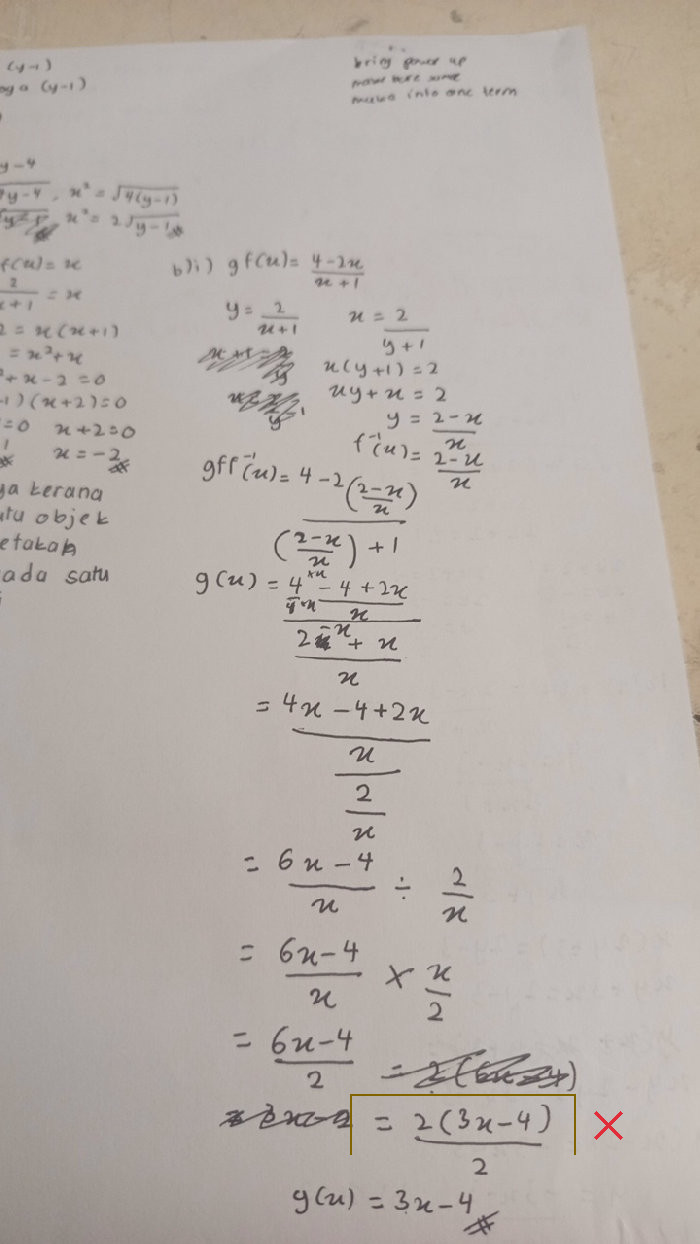 (y-1)
(y-1)
bring power up
into one term
y-4
, x² = √4(y-1)
x² = 2√y-1
f(x) = x
2/x+1 = x
2 = x(x+1)
= x²+x
+x-2=0
-1)(x+2)=0
=0 x+2=0
x=-2
kerana
objek
ada satu
b)i) gf(x) = 4-2x/x+1
y = 2/x+1 x = 2/y+1
x(y+1) = 2
xy+x = 2
y = 2-x/x
f⁻¹(x) = 2-x/x
gff⁻¹(x) = 4-2(2-x/x)/(2-x/x)+1
g(x) = 4 ×x - 4+2x/x / 2-x+x/x
= 4x-4+2x/x / 2/x
= 6x-4/x ÷ 2/x
= 6x-4/x × x/2
= 6x-4/2
= 2(3x-4)/2
g(x) = 3x-4